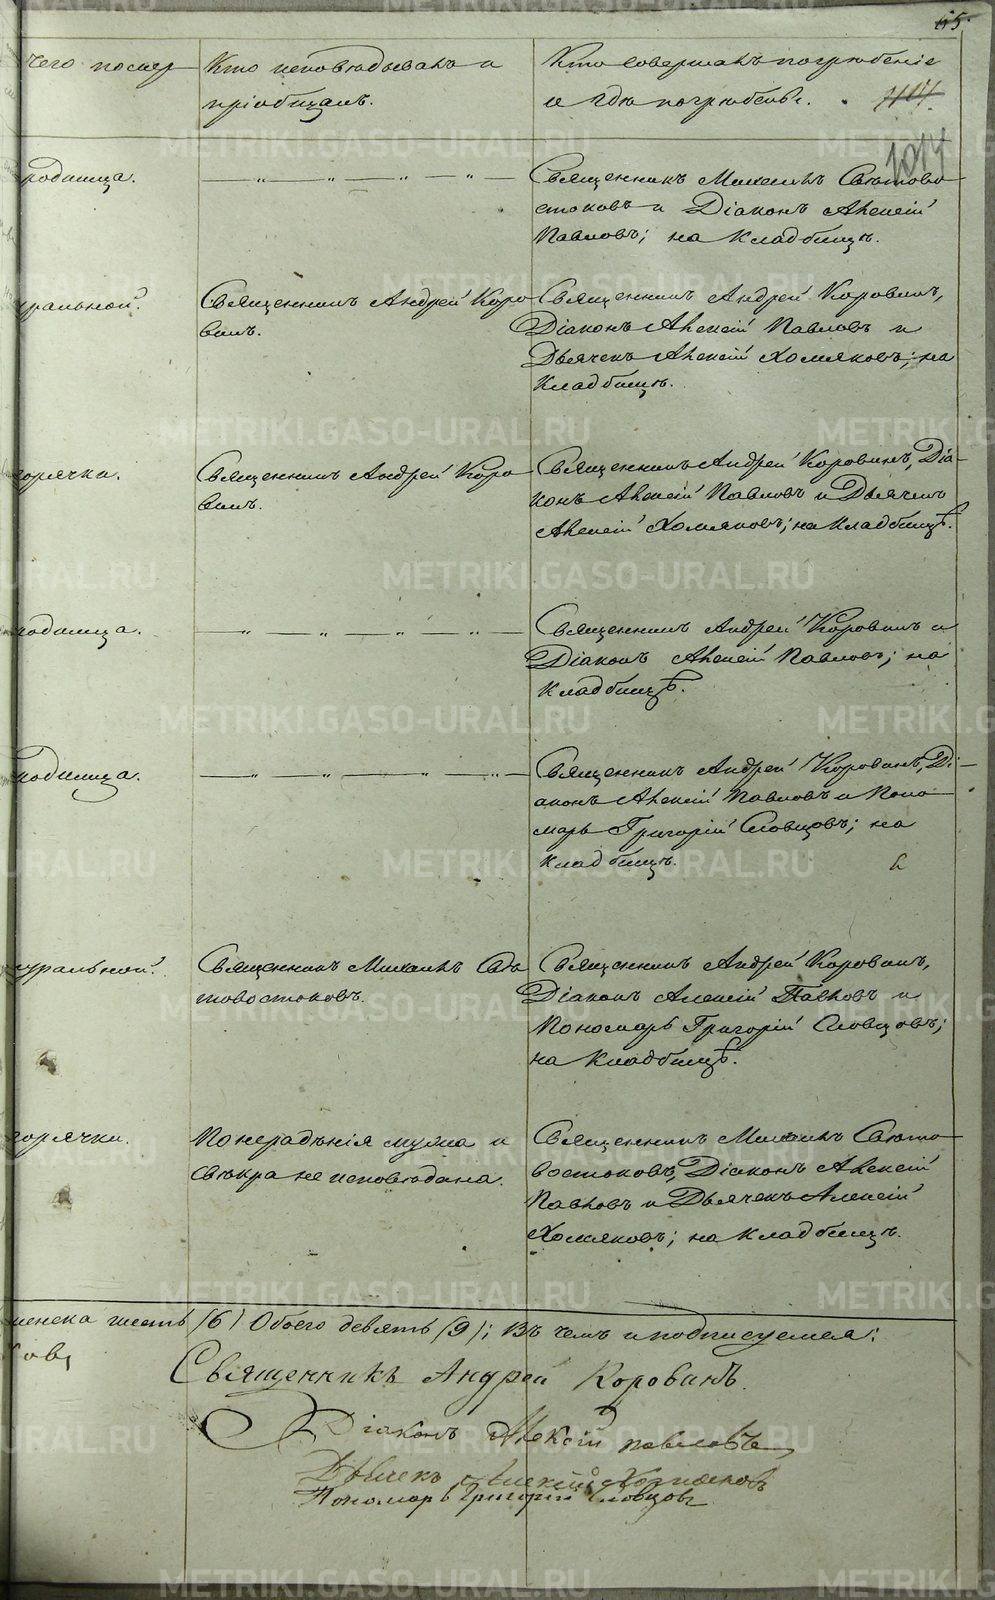 65.
чего помер
Кто исповѣдывалъ и
пріобщалъ.
Кто совершалъ погребеніе
и гдѣ погребены.
1014
родимца.
Священникъ Михаилъ Свѣтово-
стоковъ и Діаконъ Алексій
Павловъ; на кладбищѣ.
уральной.
Священникъ Андрей Коро
винъ.
Священникъ Андрей Коровинъ,
Діаконъ Алексій Павловъ и
Дьячекъ Алексій Хомяковъ; на
кладбищѣ.
горячка.
Священникъ Андрей Коро
винъ.
Священникъ Андрей Коровинъ, Діа-
конъ Алексій Павловъ и Дьячекъ
Алексій Хомяковъ; на кладбищѣ.
родимца.
Священникъ Андрей Коровинъ и
Діаконъ Алексій Павловъ; на
кладбищѣ.
родимца.
Священникъ Андрей Коровинъ, Ді-
аконъ Алексій Павловъ и Поно-
марь Григорій Словцовъ; на
кладбищѣ.
уральной.
Священникъ Михаилъ Свѣ
товостоковъ.
Священникъ Андрей Коровинъ,
Діаконъ Алексій Павловъ и
Пономарь Григорій Словцовъ;
на кладбищѣ.
горячки.
По нерадѣнія мужа и
свекра не исповѣдана.
Священникъ Михаилъ Свѣто-
востоковъ, Діаконъ Алексій
Павловъ и Дьячекъ Алексій
Хомяковъ; на кладбищѣ.
женска шесть (6) Обоего девять (9); Въ чемъ и подписуемся:
Священникъ Андрей Коровинъ.
Діаконъ Алексій Павловъ
Дьячекъ Алексій Хомяковъ
Пономарь Григорій Словцовъ
METRIKI.GASO-URAL.RU